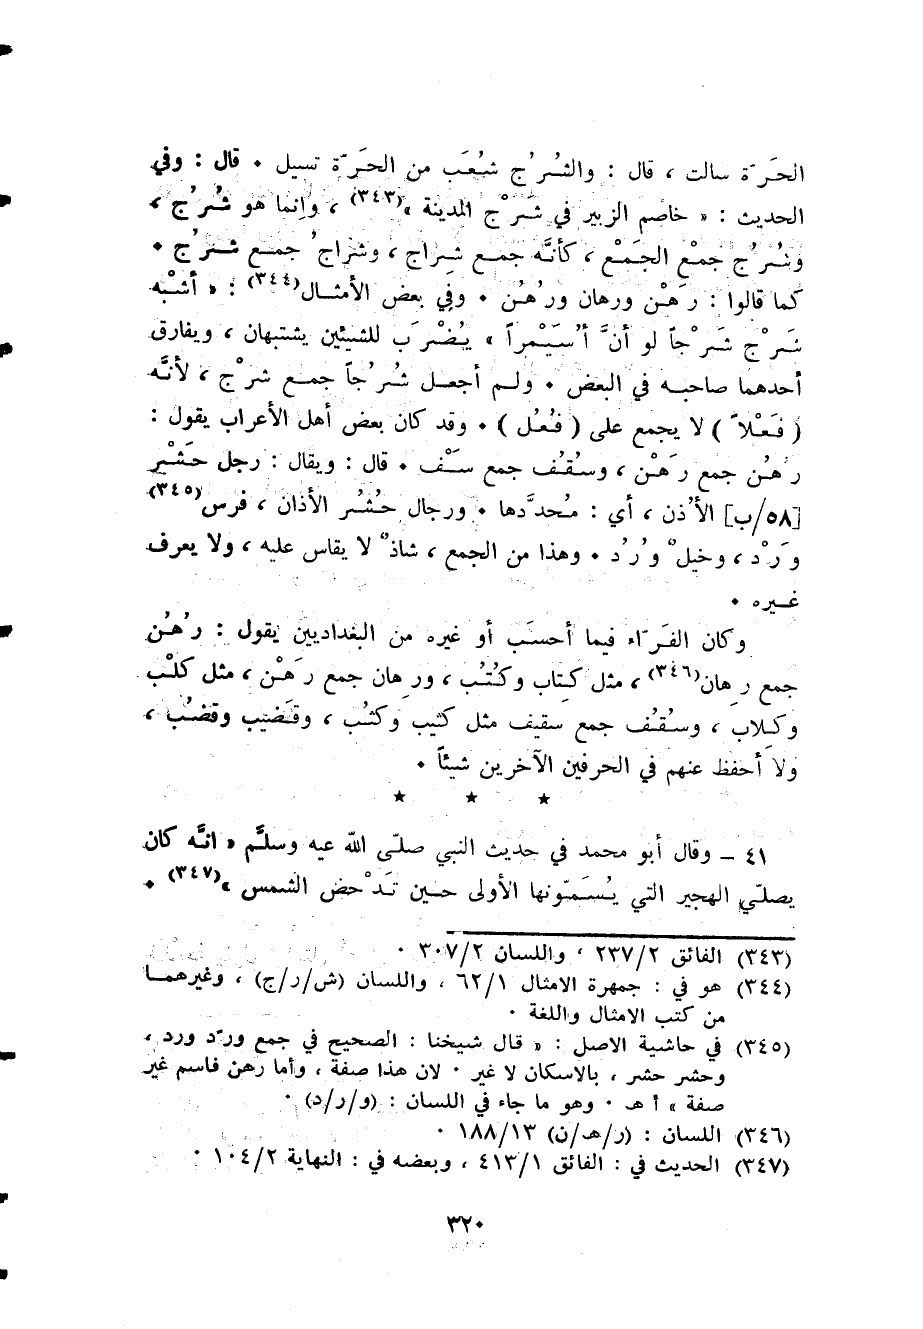 الحَرّة سالت ، قال : والشُرُج شُعَب من الحَرّة تسيل . قال : وفي
الحديث : « خاصم الزبير في شَرْج المدينة »(٣٤٣) ، وإنما هو شُرُج ،
وشُرُج جمْع الجمَعْ ، كأنَّه جمع شِراج ، وشراجُ جمع شرْج .
كما قالوا : رَهْن ورهان ورُهُن . وفي بعض الأمثال(٣٤٤) : « أشْبَه
شَرْج شَرْجاً لو أنَّ أُسَيْمراً » يُضْرَب للشيئين يشتبهان ، ويفارق
أحدهما صاحبه في البعض . ولم أجعل شُرُجاً جمع شرْج ، لأنَّه
( فَعْلاً ) لا يجمع على ( فُعُل ) . وقد كان بعض أهل الأعراب يقول :
رُهُن جمع رَهْن ، وسُقُف جمع سَقْف . قال : ويقال : رجل حَشْر
[٥٨/ب] الأُذن ، أي : مُحدَّدها . ورجال حُشُر الأذان ، فرس(٣٤٥)
وَرْد ، وخيلٌ وُرُد . وهذا من الجمع ، شاذٌ لا يقاس عليه ، ولا يعرف
غيره .
وكان الفَرّاء فيما أحسَب أو غيره من البغداديين يقول : رُهُن
جمع رِهان(٣٤٦) ، مثل كِتاب وكُتُب ، ورِهان جمع رَهْن ، مثل كلْب
وكِلاب ، وسُقُف جمع سقيف مثل كثيب وكثُب ، وقَضيب وقضُب ،
ولا أحفظ عنهم في الحرفين الآخرين شيئاً .
★ ★ ★
٤١ – وقال أبو محمد في حديث النبي صلّى الله عيه وسلَّم « انَّه كان
يصلّي الهجير التي يُسَمّونها الأولى حين تَدْحض الشمس »(٣٤٧) .
(٣٤٣) الفائق ٢٣٧/٢ ، واللسان ٣٠٧/٢ .
(٣٤٤) هو في : جمهرة الامثال ٦٢/١ ، واللسان (ش/ر/ج) ، وغيرهما
من كتب الامثال واللغة .
(٣٤٥) في حاشية الاصل : « قال شيخنا : الصحيح في جمع ورْد ورد ،
وحشر حشر ، بالاسكان لا غير . لان هذا صفة ، وأما رهن فاسم غير
صفة » أ هـ . وهو ما جاء في اللسان : (و/ر/د) .
(٣٤٦) اللسان : (ر/هـ/ن) ١٨٨/١٣ .
(٣٤٧) الحديث في : الفائق ٤١٣/١ ، وبعضه في : النهاية ١٠٤/٢ .
٣٢٠